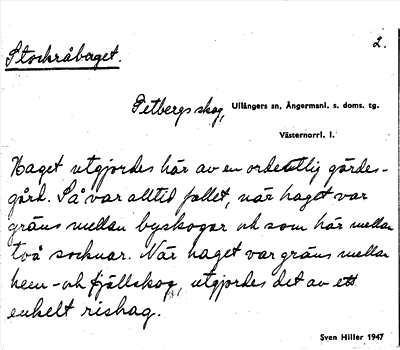 Stockråhaget.
2.
Tetbergsskog, Ullångers sn, Ångermanl. s. doms. tg.
Västernorrl. l.
Haget utgjordes här av en ordentlig gärdes-
gård. Så var alltid fallet, när haget var
gräns mellan byskogar och som här mellan
två socknar. När haget var gräns mellan
hem- och fjällskog, utgjordes det av ett
enkelt rishag.
Sven Hiller 1947